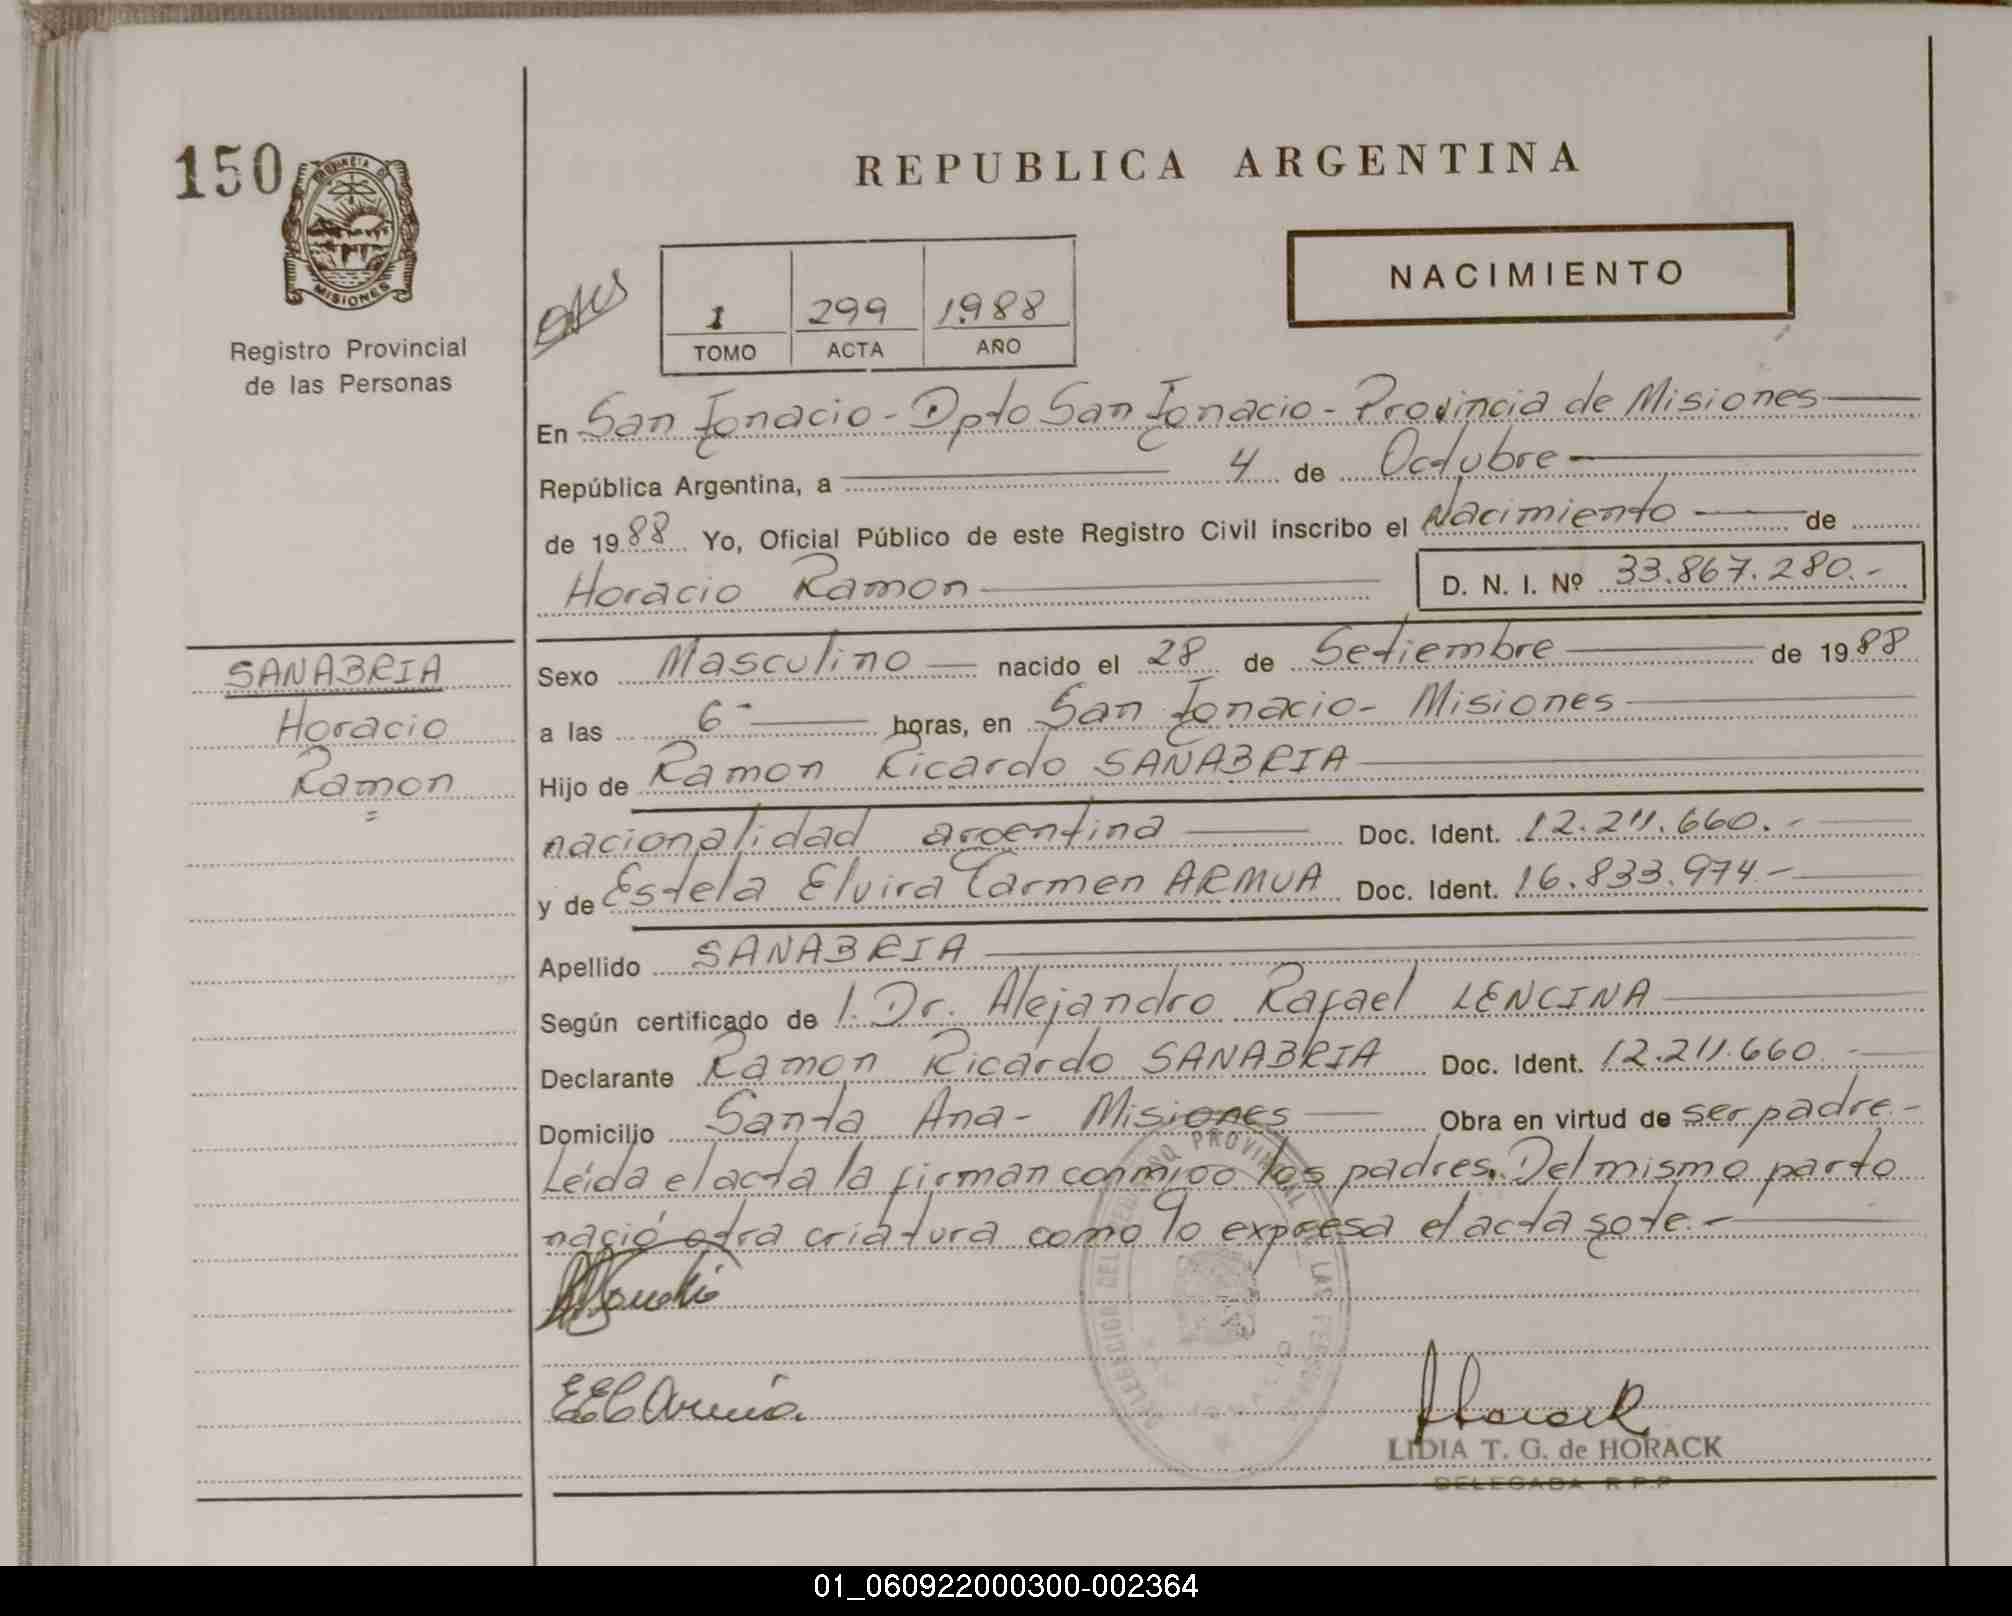 150
PROVINCIA DE
MISIONES
Registro Provincial
de las Personas
REPUBLICA ARGENTINA
NACIMIENTO
1 299 1988
TOMO ACTA AÑO
En San Ignacio - Dpto San Ignacio - Provincia de Misiones
República Argentina, a 4 de Octubre
de 1988 Yo, Oficial Público de este Registro Civil inscribo el Nacimiento de
Horacio Ramon D. N. I. Nº 33.867.280.-
SANABRIA
Horacio
Ramon
Sexo Masculino nacido el 28 de Setiembre de 1988
a las 6- horas, en San Ignacio - Misiones
Hijo de Ramon Ricardo SANABRIA
nacionalidad argentina Doc. Ident. 12.211.660.-
y de Estela Elvira Carmen ARMUA Doc. Ident. 16.833.974-
Apellido SANABRIA
Según certificado de l. Dr. Alejandro Rafael LENCINA
Declarante Ramon Ricardo SANABRIA Doc. Ident. 12.211.660.-
Domicilio Santa Ana - Misiones Obra en virtud de ser padre.-
Leida el acta la firman conmigo los padres. Del mismo parto
nació otra criatura como lo expresa el acta sgte.-
EEC Armúa
Horack
LIDIA T. G. de HORACK
DELEGADA R.P.P
01_060922000300-002364